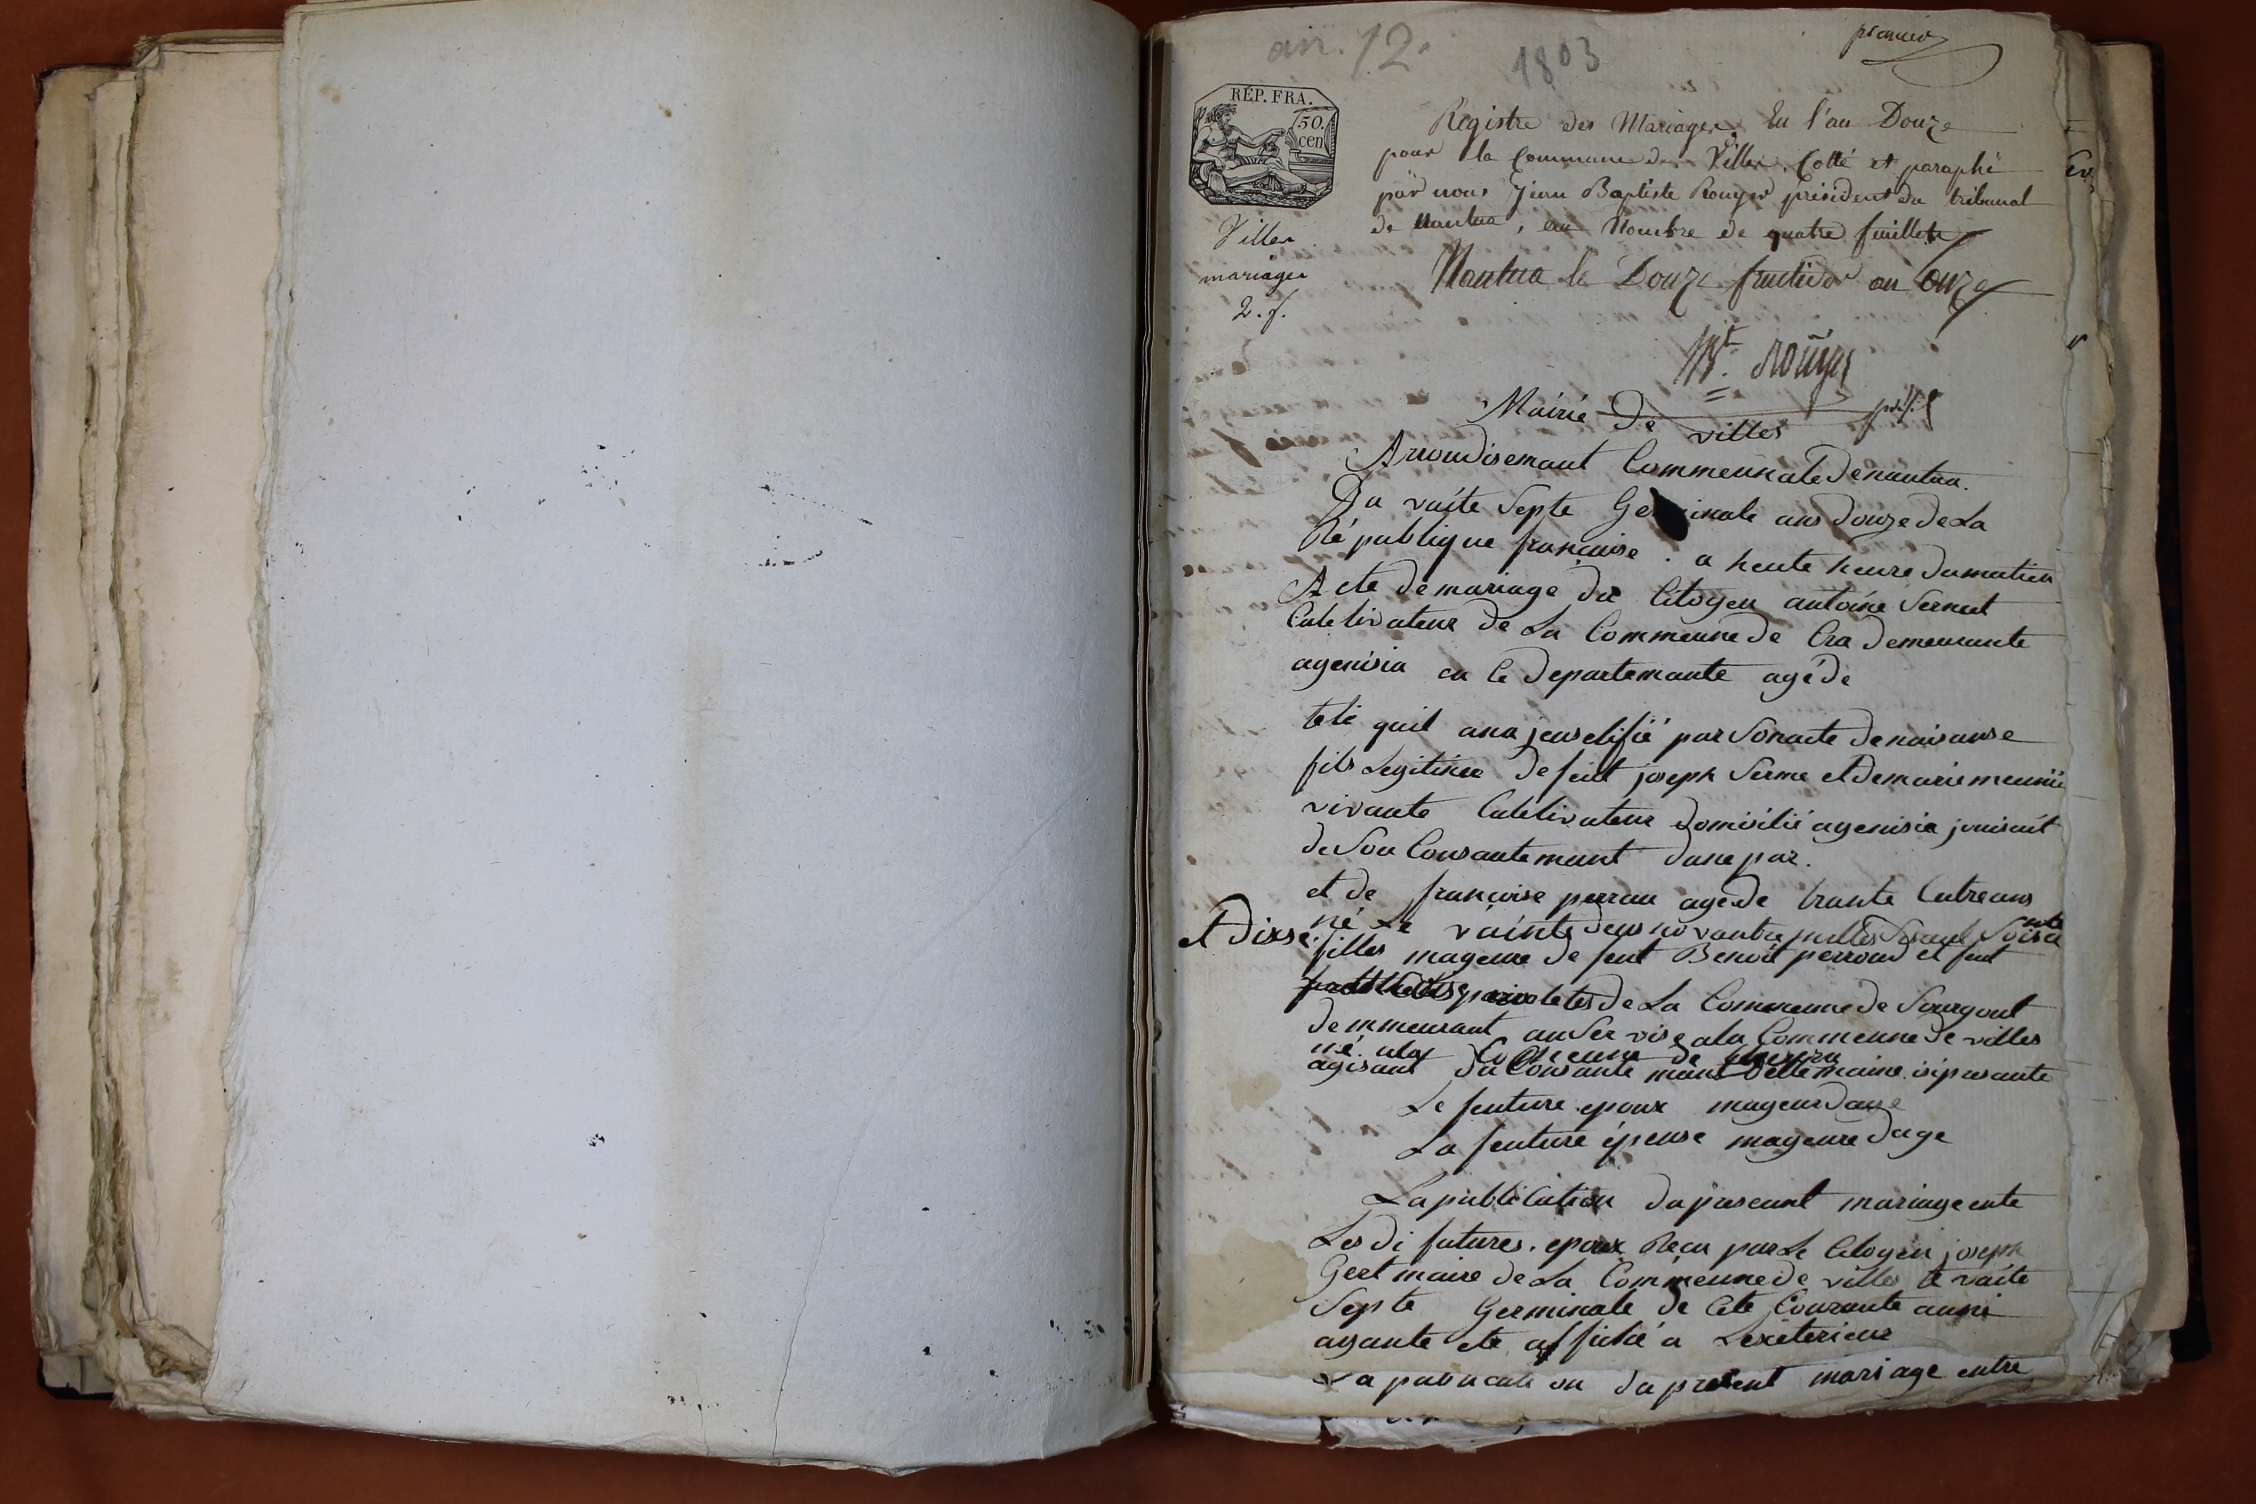 an. 12.
1803
premier
RÉP. FRA.
50.
cen
Registre des Mariages, En l'an Douze
pour la Commune de Villes. Cotté et paraphé
par nous Jean Baptiste Rouyer président du tribunal
de Nantua, au Nombre de quatre feuillets
Nantua le Douze fructidor an Onze
Villes
mariages
2. f.
Bt. Rouyer
prést.
Mairie De villes
Arrondisemant Commeunale De nantua.
Du vaite Septe Germinale ans Douze de La
République francaise. a heute heure Du matien
Acte De mariage du Citoyen antoine Sernet
Culetivateur De La Commeune de Cra Demeurante
agenisia en le Departemante agé De
tele quil ana jeustifié par Son acte De naisanse
fils Legitime De feut joseph Serme et De marie meunié
vivante Culetivateur Domisilié agenisia jouisait
De Son Consantemant Dune par.
et de francoise perrau age de trante Catre ans
né Le vainte Deus novantre milles Seaul Soisante
et disse.
filles mageure De feut Benoit perroud et feut
de La Commeune De Sourgout
Demmeurant au Servise a la Commeune De villes
né a la Commeune de
agisant Du Consante mant Delle maime isi prasante
Le feuture epoux mageur Dage
La feuture épeuse mageure Dage
La publication Du praseant mariage ente
Les Di futures. epoux Recu par Le Citoyen joseph
Gert maire De La Commeune De villes le vaite
Septe Germinale De Cete Courante anné
ayante ete affiché a Lexeterieur
La publicati on Du present mariage entre